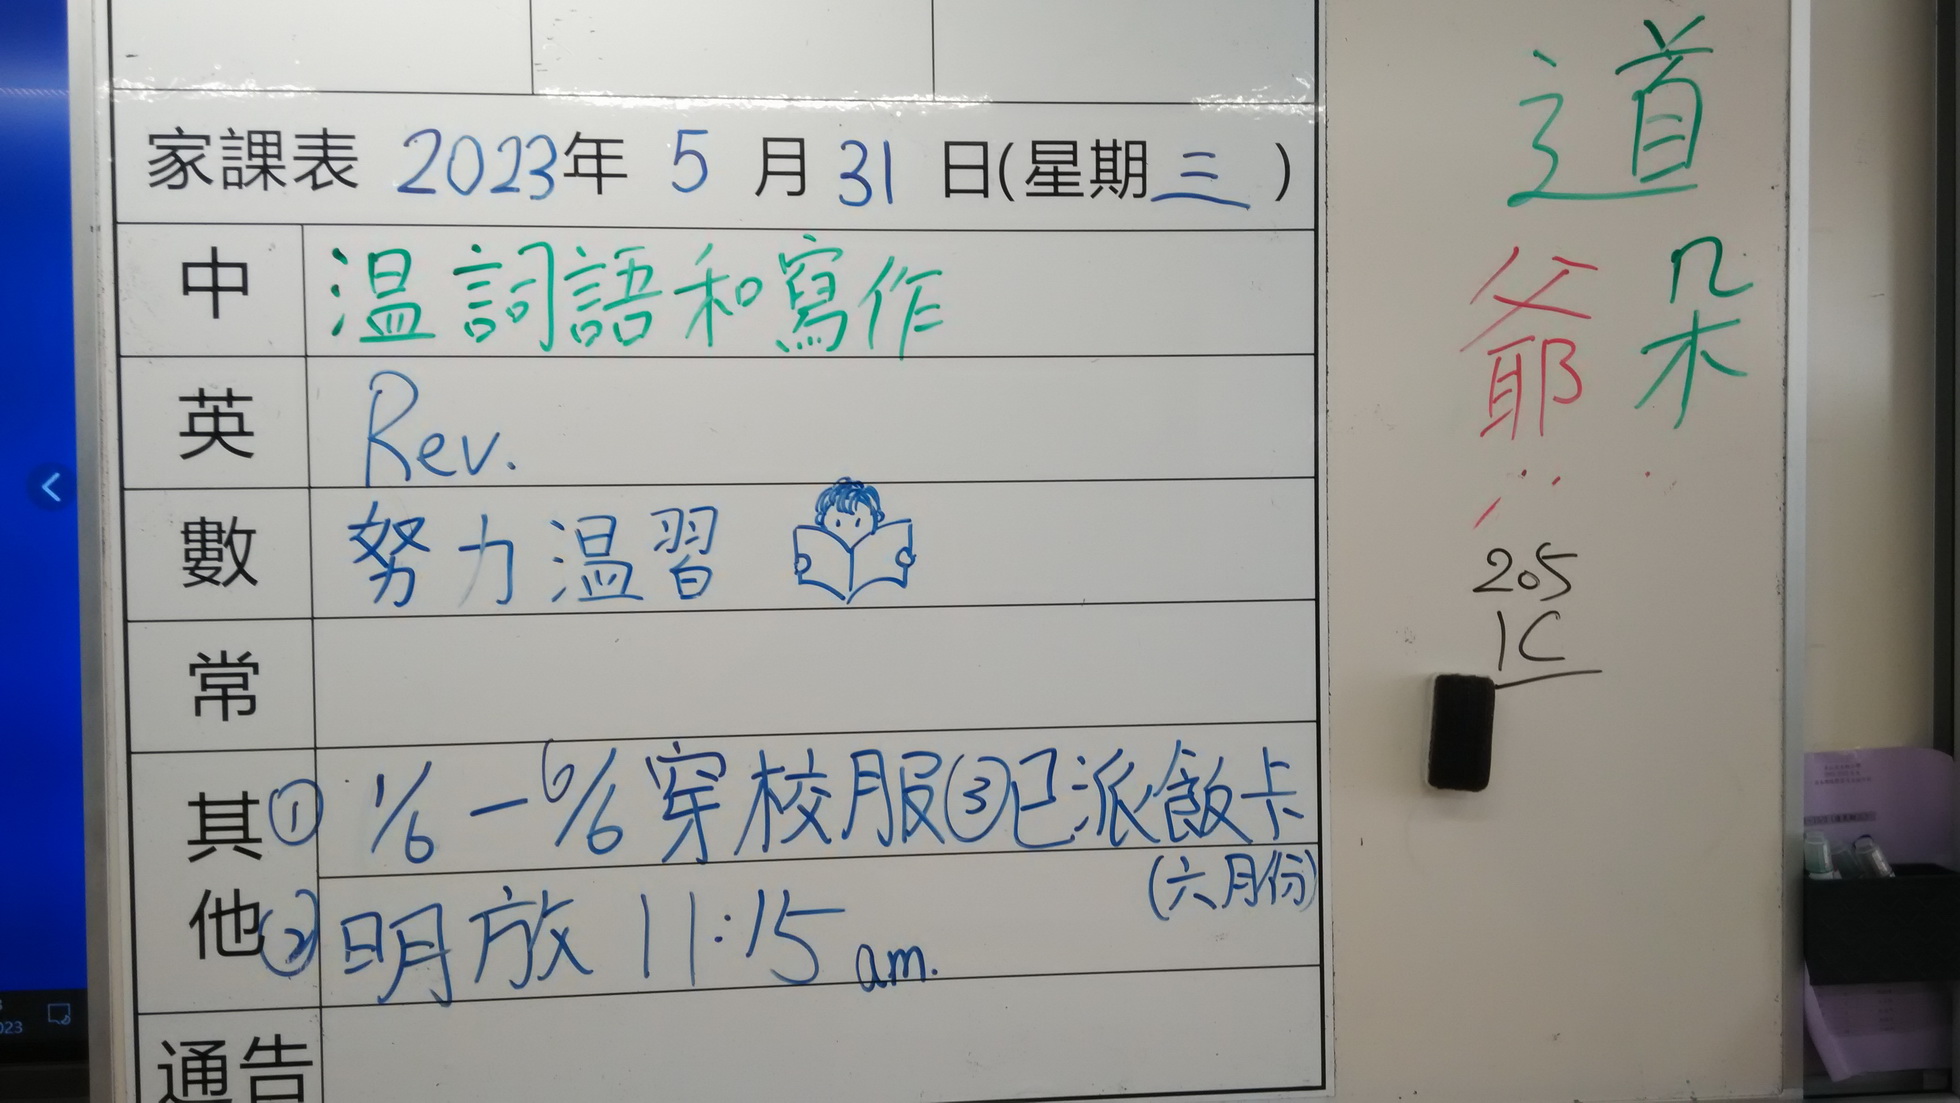 家課表 2023年 5 月 31 日(星期三)
中 温詞語和寫作
英 Rev.
數 努力温習
常
其他 ① 1/6 — 6/6 穿校服 ③已派飯卡
(六月份)
② 明放 11:15 am.
通告
道
爺 朵
205
1C
023